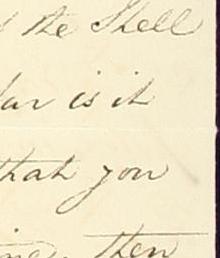 the Shell
far is it
that you
then